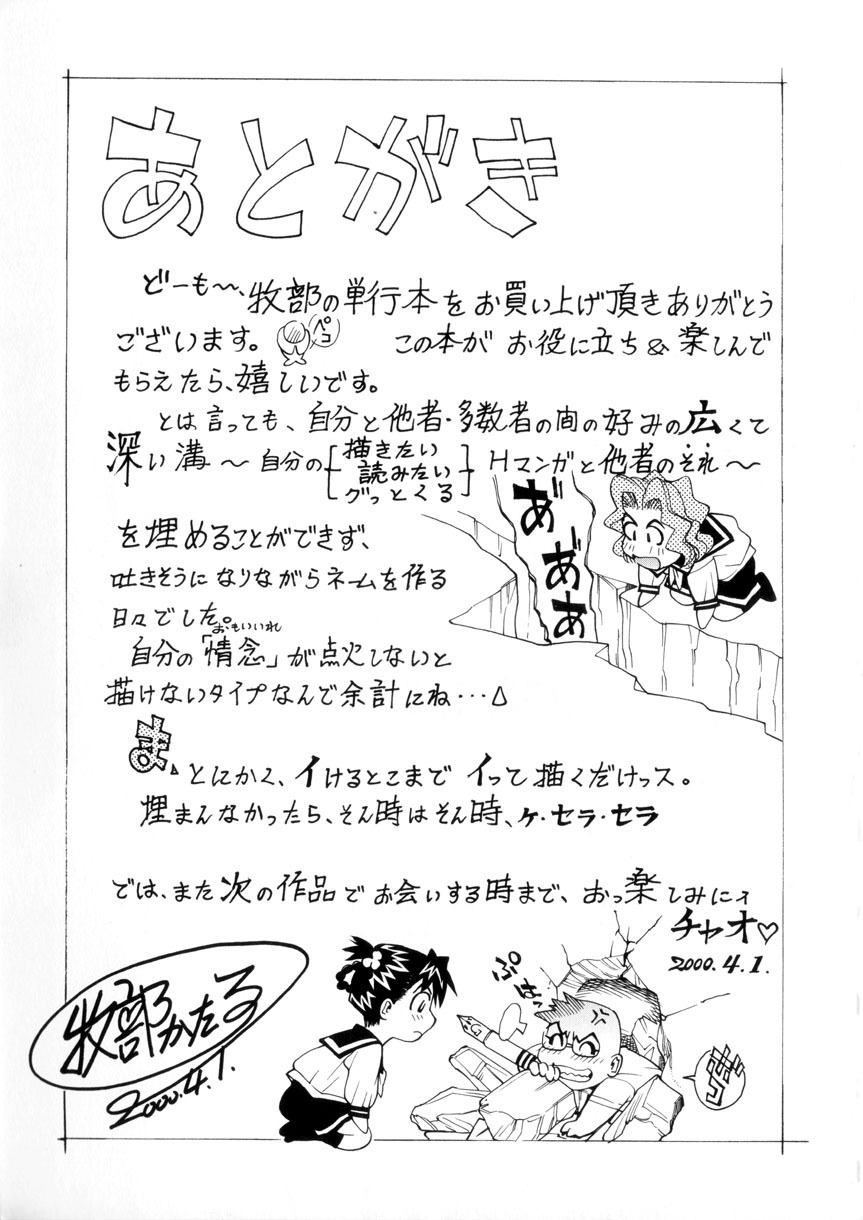 あとがき
どーも〜、牧部の単行本をお買い上げ頂きありがとう
ございます。 ペコ この本が お役に立ち & 楽しんで
もらえたら、嬉しいです。
とは言っても、自分と他者・多数者の間の好みの広くて
深い溝〜自分の[描きたい
読みたい
グっとくる]Hマンガと他者のそれ〜
を埋めることができず、
吐きそうになりながらネームを作る
日々でした。
おもいいれ
自分の「情念」が点火しないと
描けないタイプなんで余計にね…
あ゛
あ゛あ゛
ま、とにかく、イけるとこまで イって描くだけっス。
埋まんなかったら、そん時はそん時、ケ・セラ・セラ
では、また次の作品で お会いする時まで、おっ楽しみにィ
チャオ♡
2000.4.1.
牧部かたる
2000.4.1.